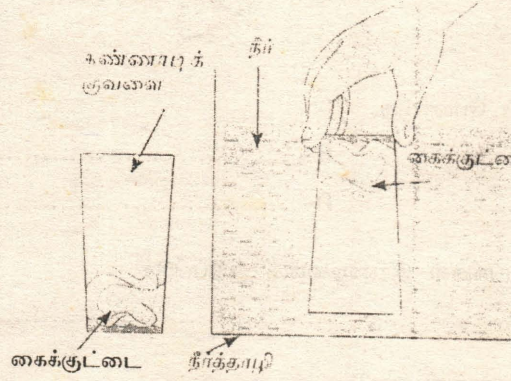 கண்ணாடிக்
குவளை
நீர்
கைக்குட்டை
கைக்குட்டை
நீர்த்தாழி